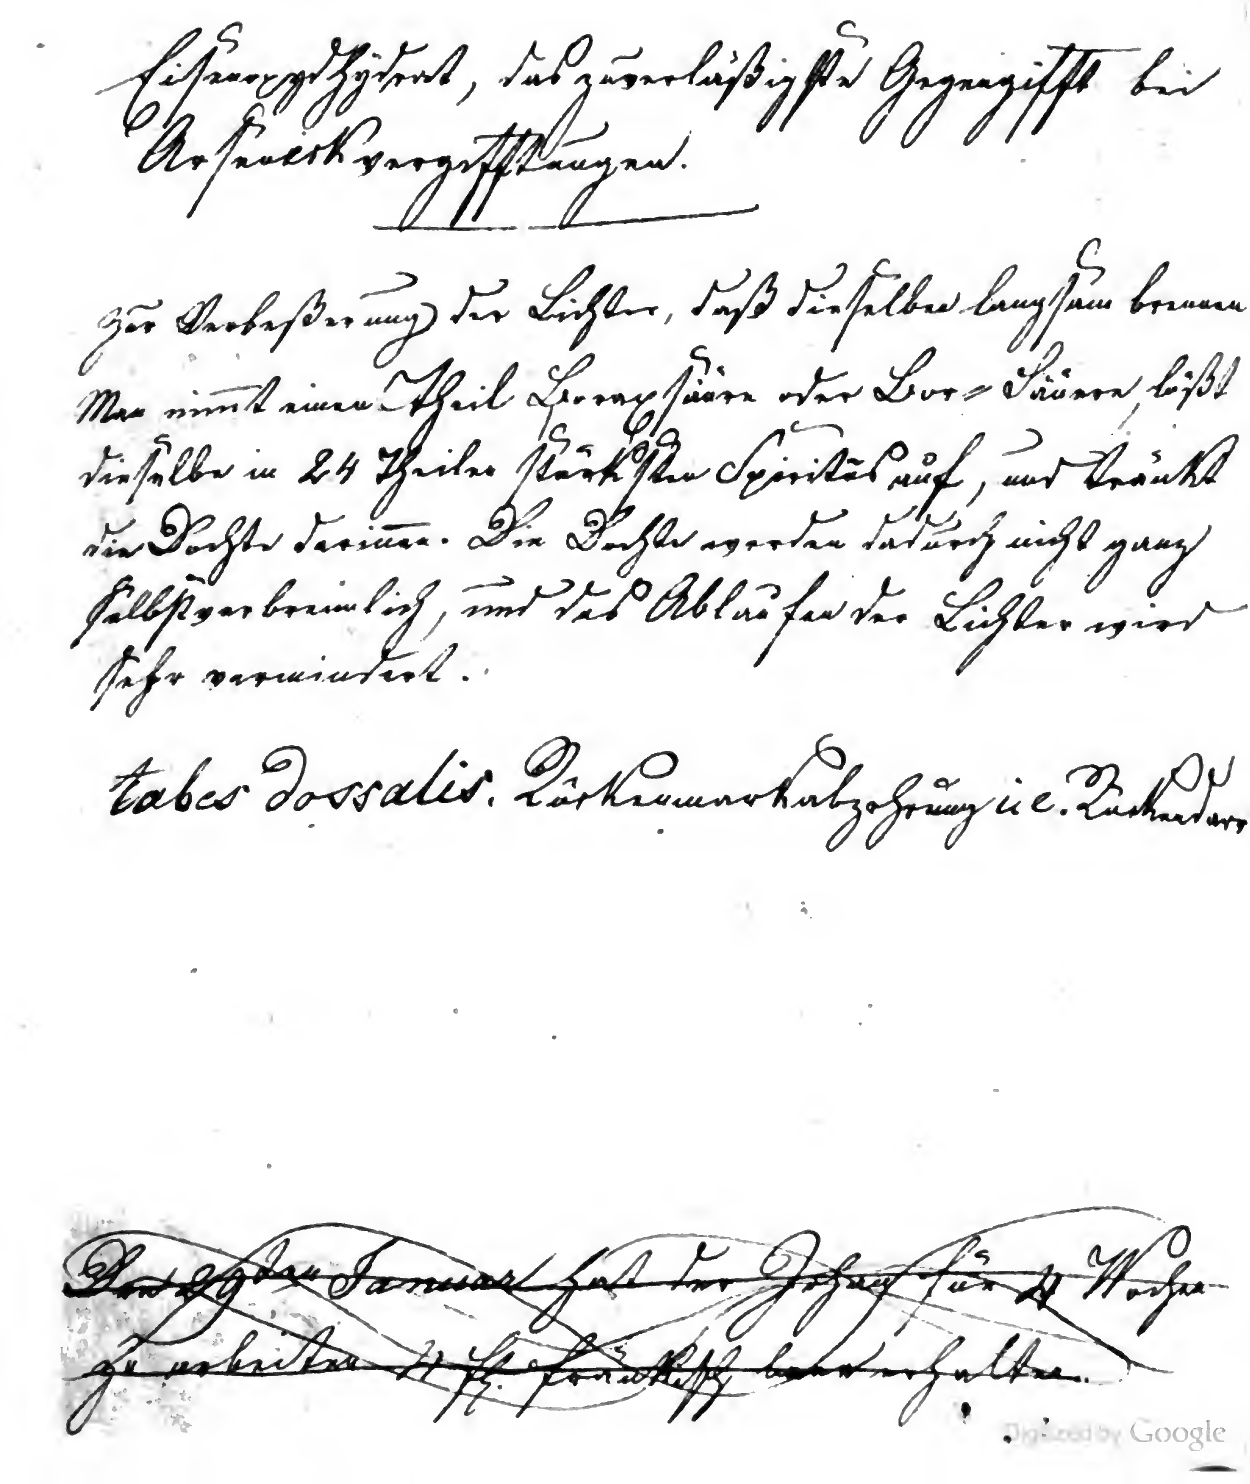 Eisenoxydhydrat, das zuverläßigste Gegengifft bei
Arsenickvergifftungen.
Zur Verbeßerung der Lichter, daß dieselben langsam brennen
Man nimmt einen Theil Boraxsäure oder Bor= Säure, lößt
dieselbe in 24 Theilen stärksten Spiritus auf, und tränkt
die Dochte darinnen. Die Dochte werden dadurch nicht ganz
selbstverbrennlich, und das Ablaufen der Lichter wird
sehr vermindert.
tabes dossalis. Rückenmarkabzehrung i e. Rückendarr
Den 29ten Januar hat der Johan für 4 Wochen
zu arbeiten 4 fl. fränkisch baar erhalten.
Digitized by Google